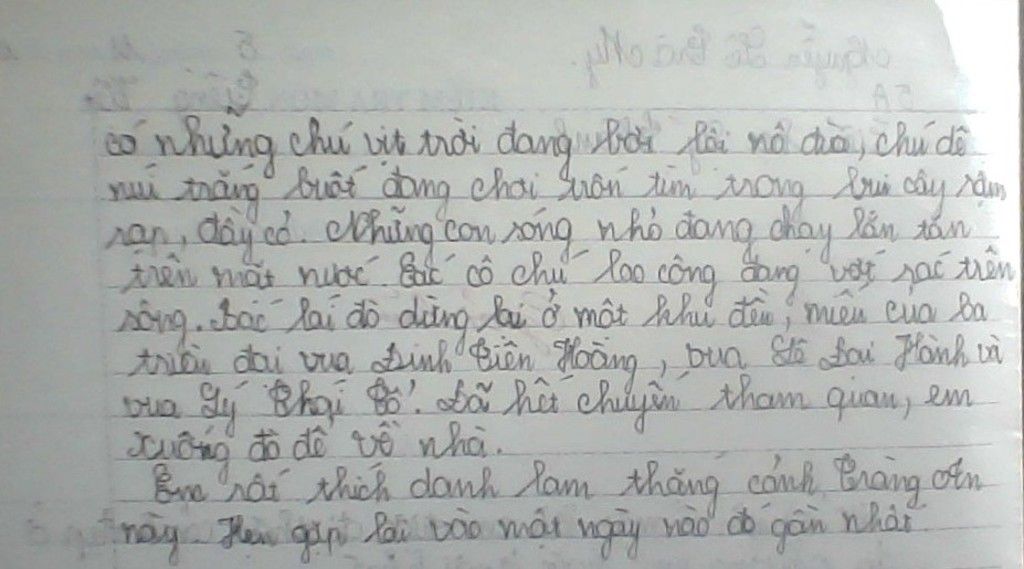 có những chú vịt trời đang bơi lội nô đùa, chú dê
núi trắng buốt đang chơi trốn tìm trong bụi cây rậm
rạp, đầy cỏ. Những con sóng nhỏ đang chạy lăn tăn
trên mặt nước. Các cô chú lao công đang vớt rác trên
sông. Bác lái đò dừng lại ở một khu đền, miếu của ba
triều đại vua Đinh Tiên Hoàng, vua Lê Đại Hành và
vua Lý Thái Tổ. Đã hết chuyến tham quan, em
xuống đò để về nhà.
Em rất thích danh lam thắng cảnh Tràng An
này. Hẹn gặp lại vào một ngày nào đó gần nhất